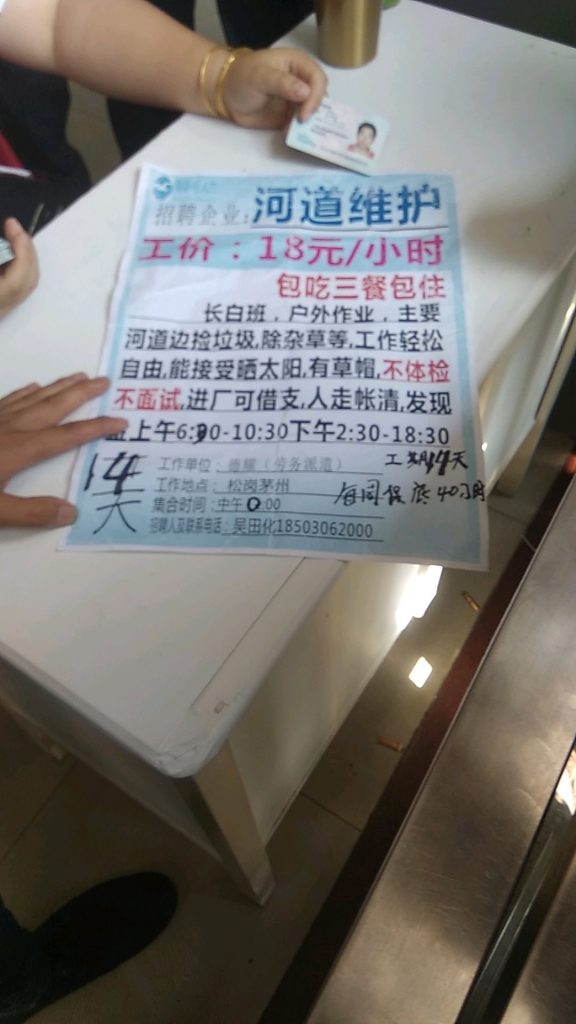 招聘企业:河道维护
工价：18元/小时
包吃三餐包住
长白班，户外作业，主要
河道边捡垃圾,除杂草等,工作轻松
自由,能接受晒太阳,有草帽,不体检
不面试,进厂可借支,人走帐清,发现
上午6:00-10:30下午2:30-18:30
14天
工作单位：德耀（劳务派遣）
工期14天
工作地点：松岗茅州
每周保底40小时
集合时间：中午0:00
招聘人及联系电话：吴田化18503062000